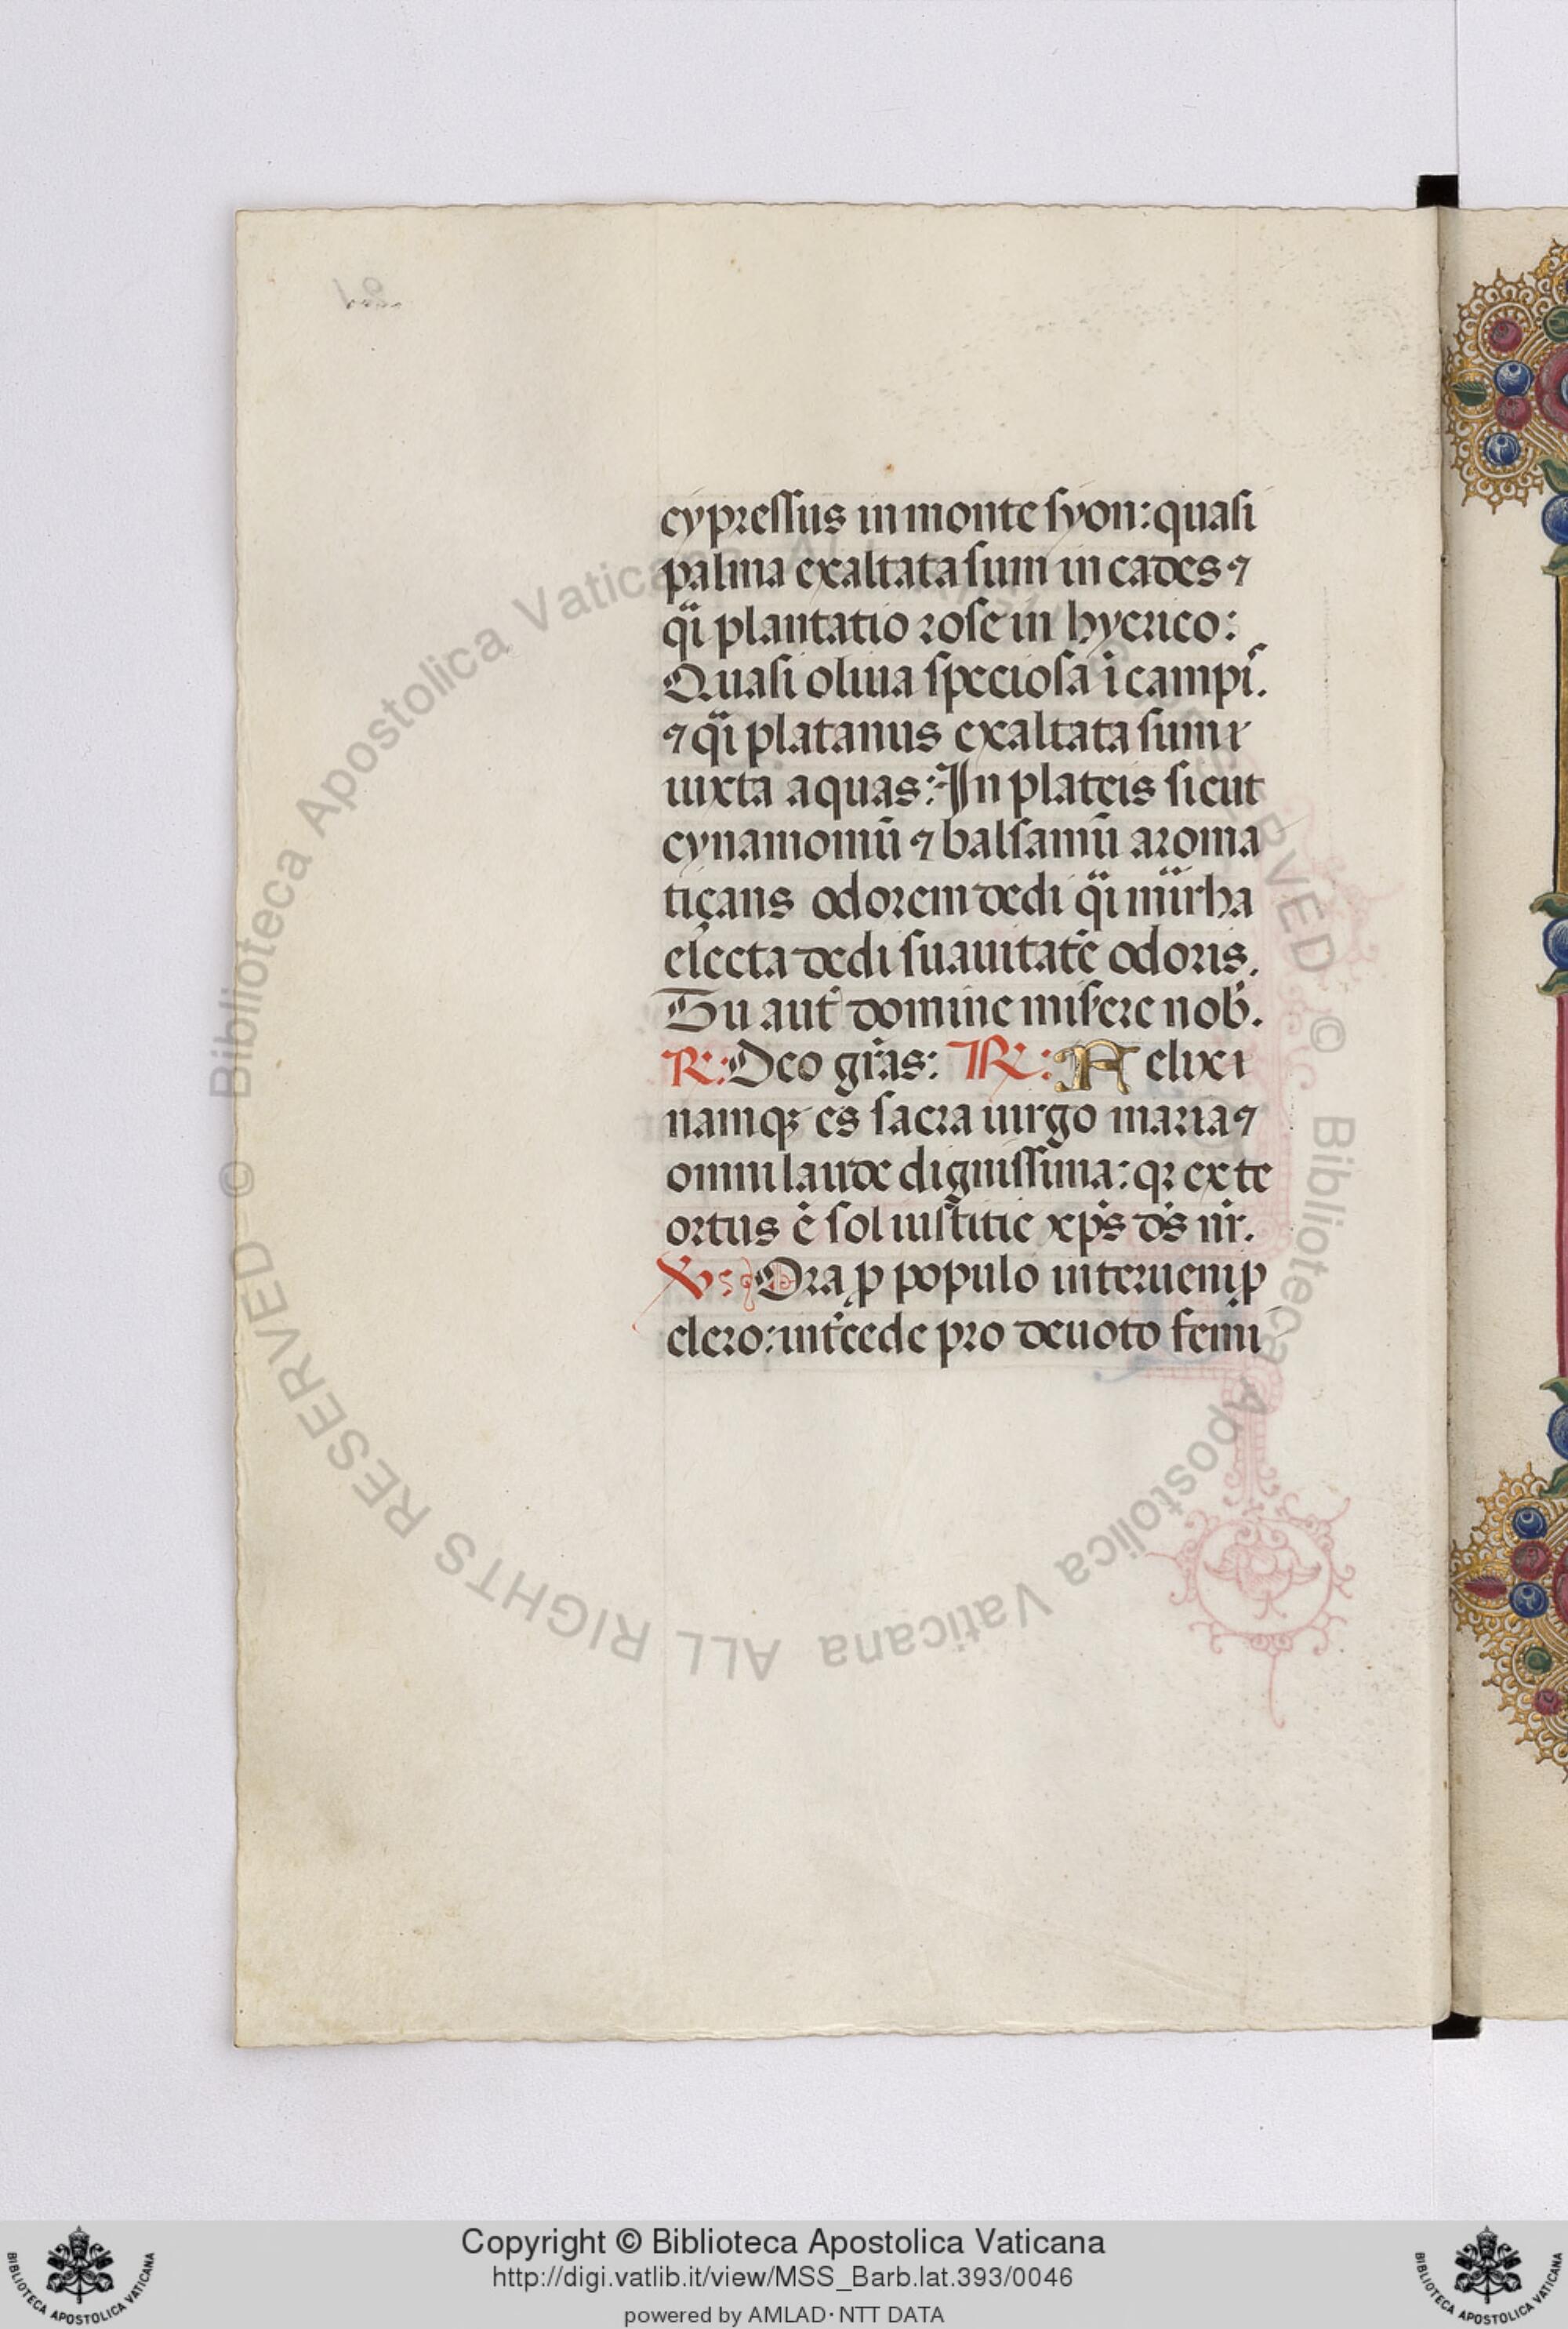 cypressus in monte syon: quasi
palma exaltata sum in cades ⁊
qͣi plantatio rose in hyerico:
Quasi oliua speciosa ī campis.
⁊ qͣi platanus exaltata sum i
uixta aquas: In plateis sicut
cynamomū ⁊ balsamū aroma
tiçans odorem dedi qͣi mirrha
electa dedi suauitatē odoris.
Tu aut̄ domine misere nob̄.
R: Deo grãs: R: Felix i
namqꝫ es sacra uirgo maria ⁊
omni laude dignissima: qꝛ ex te
ortus ē sol iustitie xp̄s ds̄ nr̄.
V: Ora ꝓ populo interueni ꝓ
clero: int̄cede pro deuoto femi
Copyright © Biblioteca Apostolica Vaticana
http://digi.vatlib.it/view/MSS_Barb.lat.393/0046
powered by AMLAD · NTT DATA
BIBLIOTECA APOSTOLICA VATICANA
BIBLIOTECA APOSTOLICA VATICANA
© Biblioteca Apostolica Vaticana ALL RIGHTS RESERVED © Biblioteca Apostolica Vaticana ALL RIGHTS RESERVED